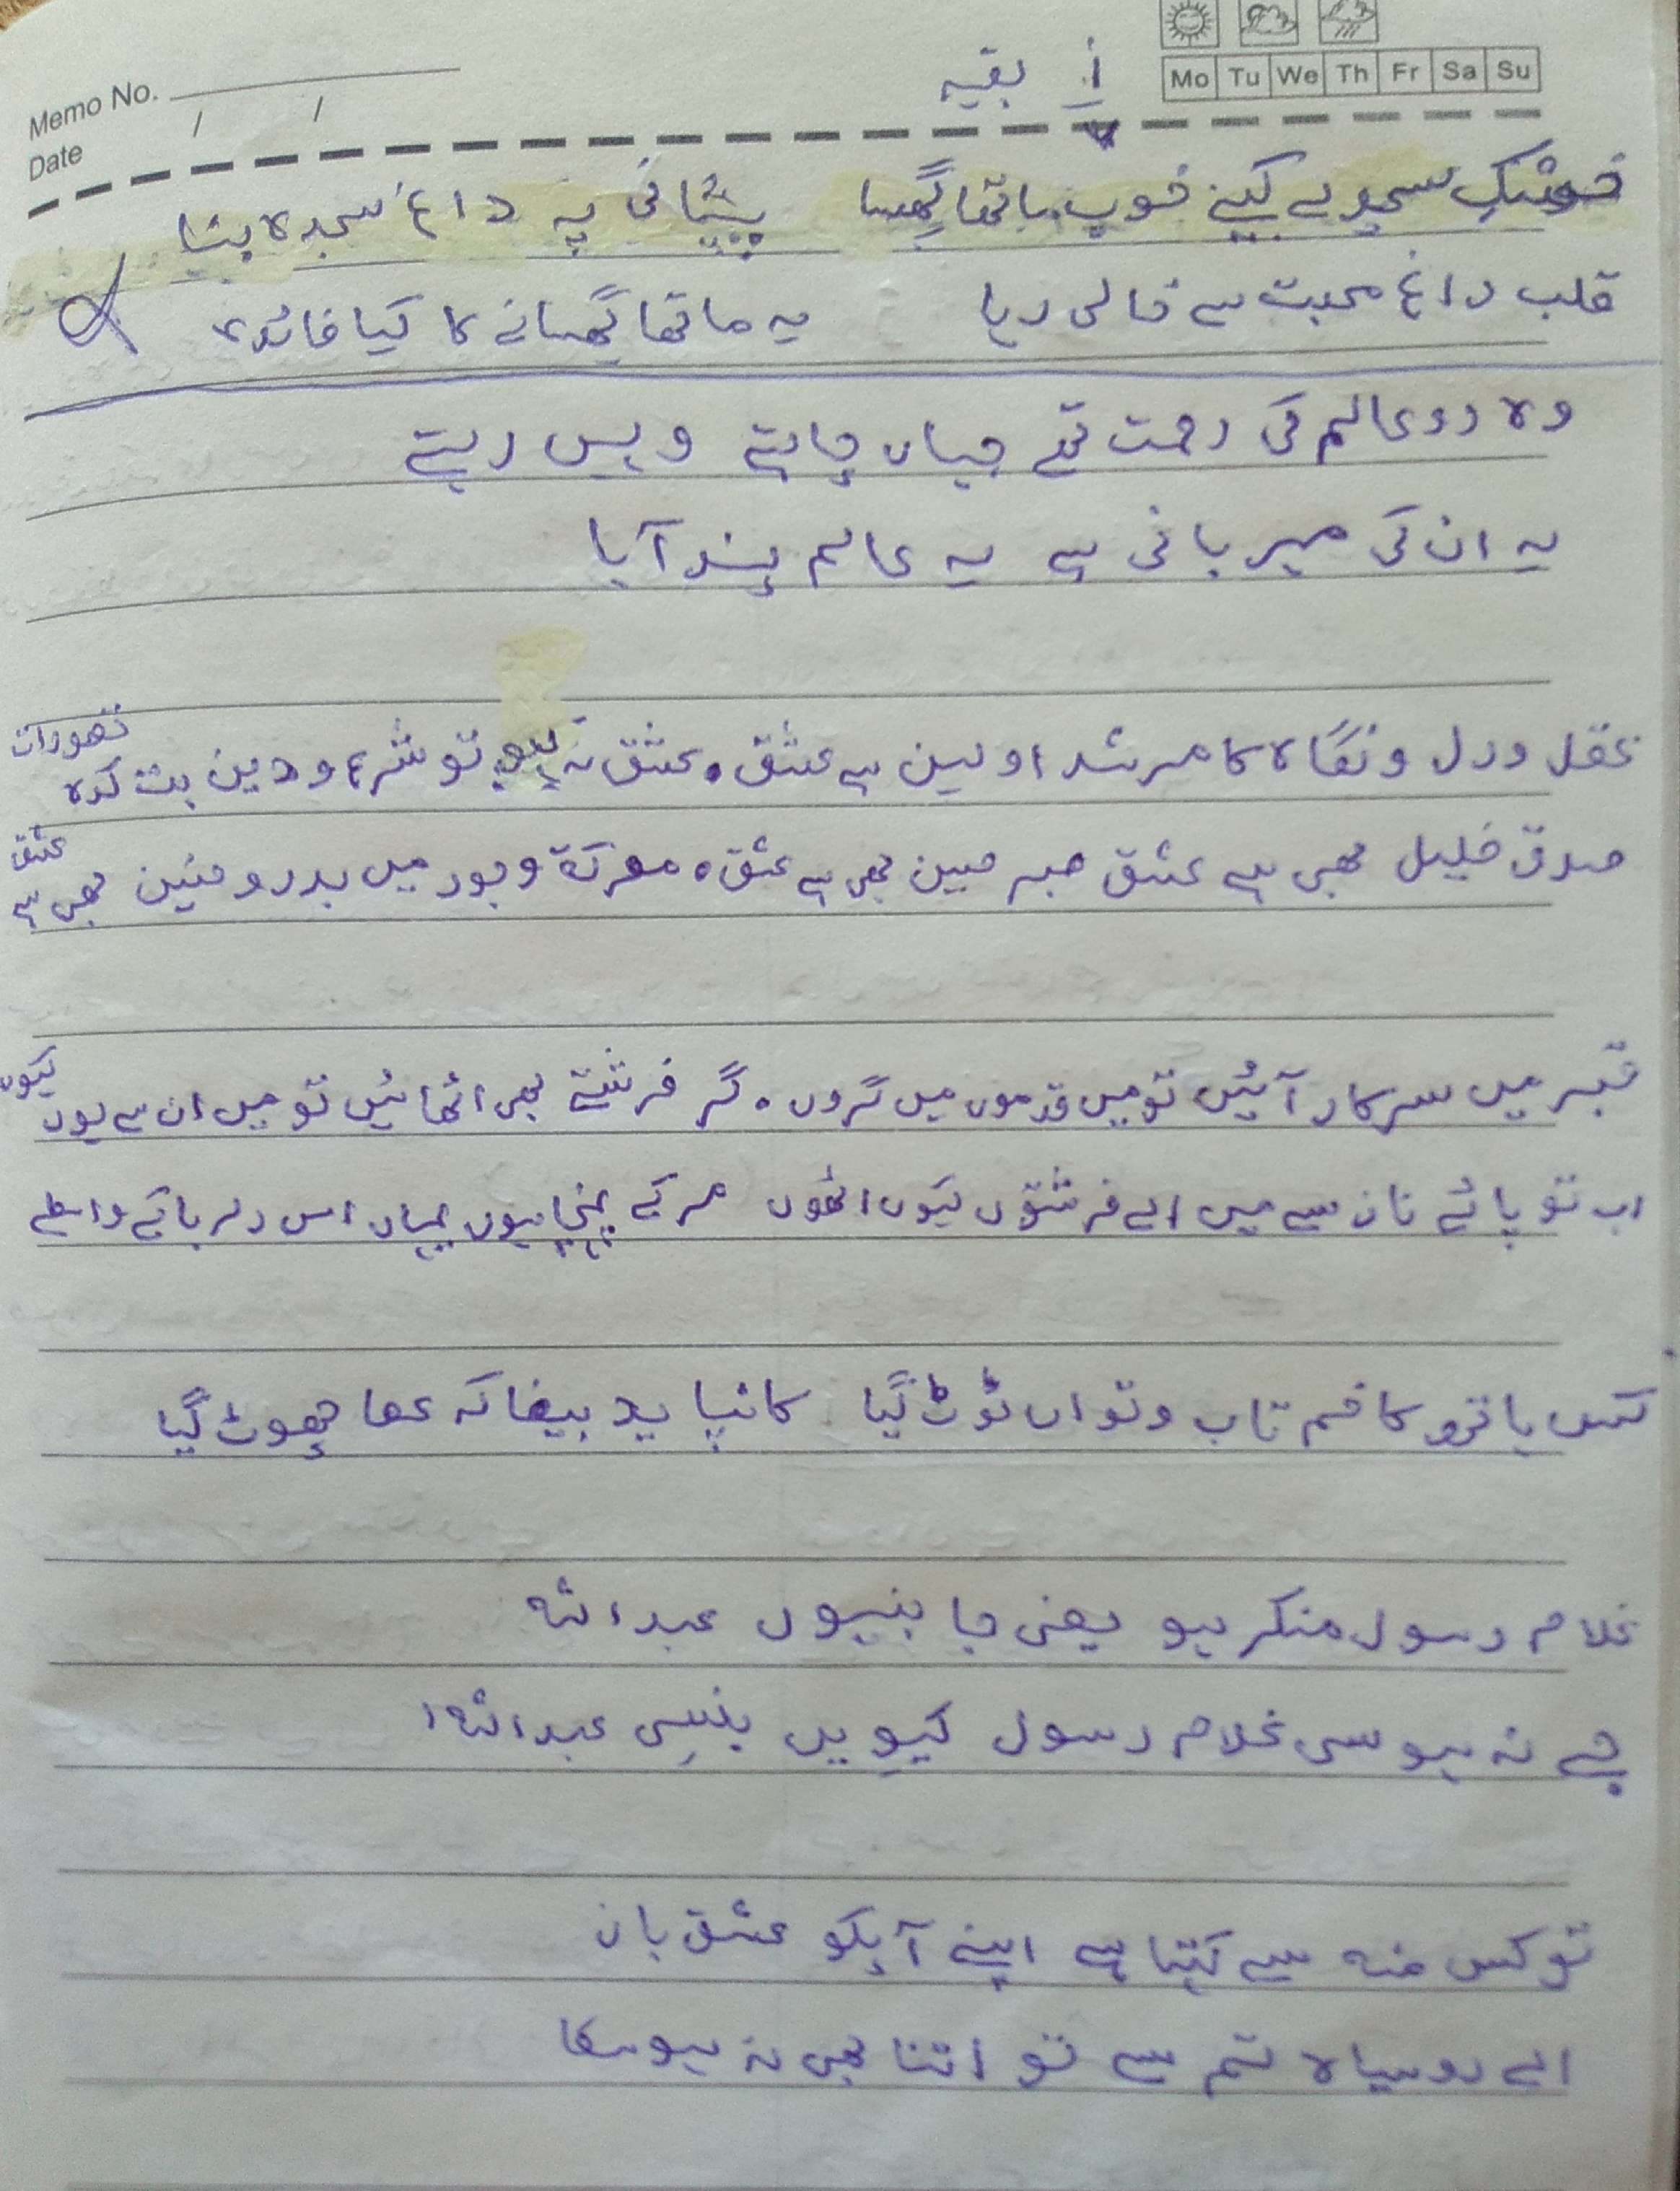 Memo No.
Date / /
Mo Tu We Th Fr Sa Su
بقیہ
خوشک سجدے کیئے خوب ماتھا گھسا پیشانی پہ داغ سجدہ بنا
قلب داغ محبت سے خالی رہا یہ ماتھا گھسانے کا کیا فائدہ
وہ دو عالم کی رحمت تھے جہاں چاہتے وہیں رہتے
یہ ان کی مہربانی ہے یہ عالم پسند آیا
عقل و دل و نگاہ کا مرشد اولین ہے عشق ہ عشق نہ ہو تو شرع و دین بت کدہ تصورات
صدق خلیل بھی ہے عشق صبر حسین بھی ہے عشق ہ معرکۃ وجود میں بدر و حنین بھی ہے عشق
قبر میں سرکار آئیں تو میں قدموں میں گروں ہ گر فرشتے بھی اٹھائیں تو میں ان سے یوں کہوں
اب تو پائے ناز سے میں اے فرشتوں کیوں اٹھوں مر کے پہنچا ہوں یہاں اس دلربا کے واسطے
کس بازو کا خم تاب و تواں ٹوٹ گیا کانپا ید بیضا کہ عصا چھوٹ گیا
غلام رسول منکر ہو یعنی جا بنیوں عبداللہ
جے نہ ہوسی غلام رسول کیویں بنسی عبداللہ
تو کس منہ سے کہتا ہے اپنے آپکو عشق باز
اے روسیاہ تم سے تو اتنا بھی نہ ہو سکا